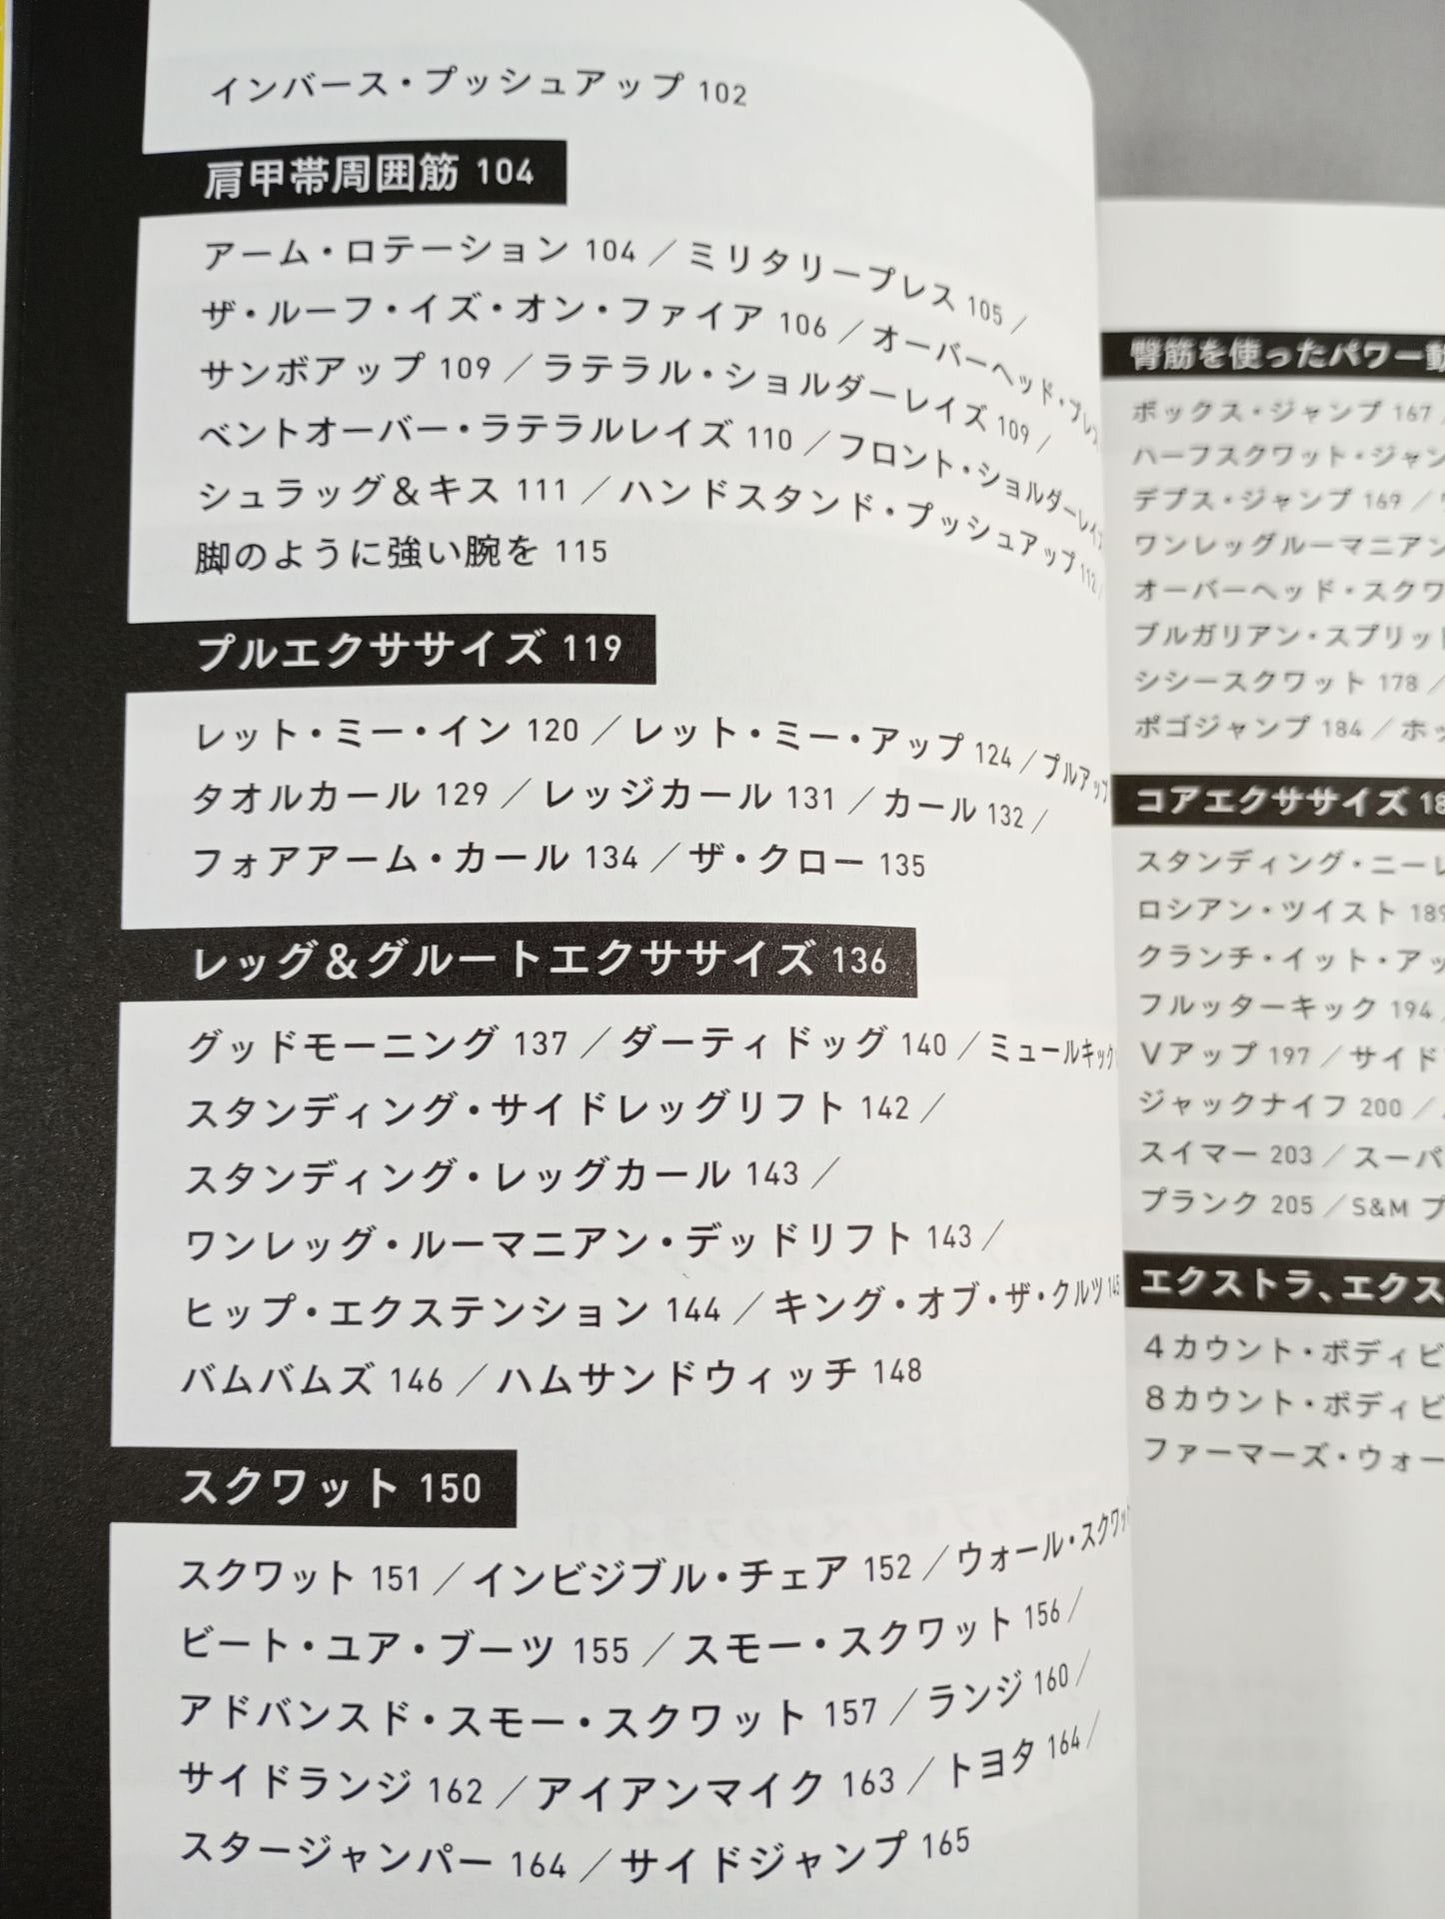 インバース・プッシュアップ 102
肩甲帯周囲筋 104
アーム・ローテーション 104 ／ミリタリープレス 105 ／
ザ・ルーフ・イズ・オン・ファイア 106 ／オーバーヘッド・プレス
サンボアップ 109 ／ラテラル・ショルダーレイズ 109 ／
ベントオーバー・ラテラルレイズ 110 ／フロント・ショルダーレイズ
シュラッグ＆キス 111 ／ハンドスタンド・プッシュアップ 112 ／
脚のように強い腕を 115
プルエクササイズ 119
レット・ミー・イン 120 ／レット・ミー・アップ 124 ／プルアップ
タオルカール 129 ／レッジカール 131 ／カール 132 ／
フォアアーム・カール 134 ／ザ・クロー 135
レッグ＆グルートエクササイズ 136
グッドモーニング 137 ／ダーティドッグ 140 ／ミュールキック
スタンディング・サイドレッグリフト 142 ／
スタンディング・レッグカール 143 ／
ワンレッグ・ルーマニアン・デッドリフト 143 ／
ヒップ・エクステンション 144 ／キング・オブ・ザ・クルツ 145
バムバムズ 146 ／ハムサンドウィッチ 148
スクワット 150
スクワット 151 ／インビジブル・チェア 152 ／ウォール・スクワッ
ビート・ユア・ブーツ 155 ／スモー・スクワット 156 ／
アドバンスド・スモー・スクワット 157 ／ランジ 160 ／
サイドランジ 162 ／アイアンマイク 163 ／トヨタ 164 ／
スタージャンパー 164 ／サイドジャンプ 165
臀筋を使ったパワー動
ボックス・ジャンプ 167 ／
ハーフスクワット・ジャン
デプス・ジャンプ 169 ／
ワンレッグルーマニアン
オーバーヘッド・スクワ
ブルガリアン・スプリット
シシースクワット 178 ／
ポゴジャンプ 184 ／ホッ
コアエクササイズ 18
スタンディング・ニーレ
ロシアン・ツイスト 189
クランチ・イット・アッ
フルッターキック 194
Vアップ 197 ／サイド
ジャックナイフ 200 ／
スイマー 203 ／スーパ
プランク 205 ／S&M プ
エクストラ、エクス
4カウント・ボディビ
8カウント・ボディビ
ファーマーズ・ウォー